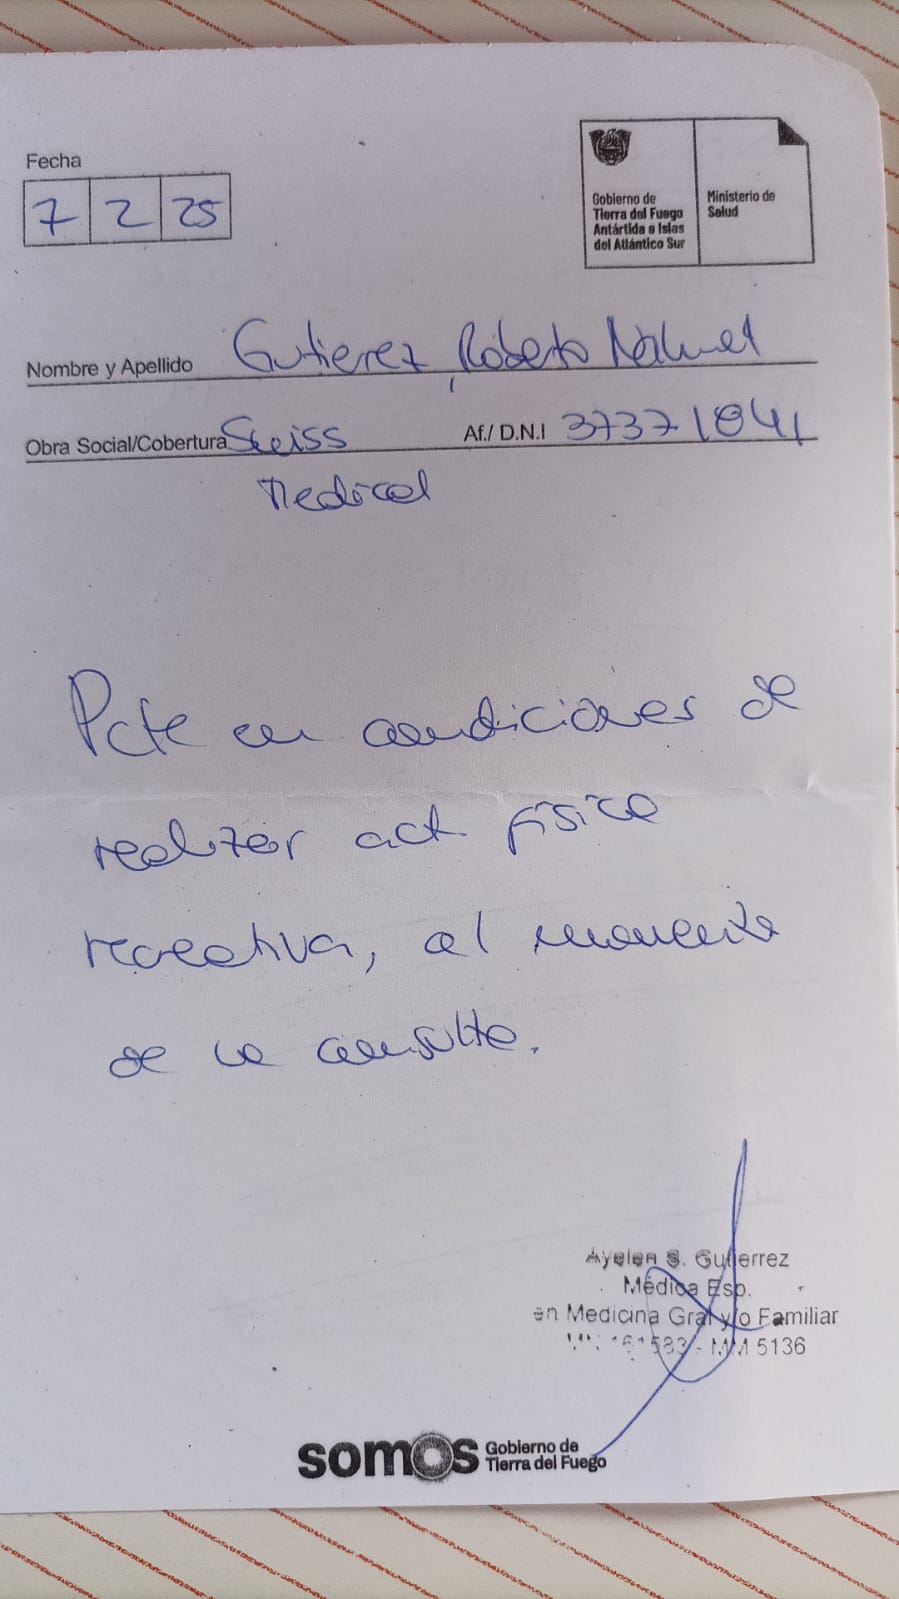 Fecha
7 2 25
Gobierno de
Tierra del Fuego
Antártida e Islas
del Atlántico Sur
Ministerio de
Salud
Nombre y Apellido Gutierrez, Roberto Nahuel
Obra Social/Cobertura Swiss Af./ D.N.I 37371841
Medical
Pcte en condiciones de
realizar act física
recreativa, al momento
de la consulta.
Ayelen S. Gutierrez
Médica Esp.
en Medicina Gral y/o Familiar
MN 161583 - MM 5136
somos Gobierno de
Tierra del Fuego